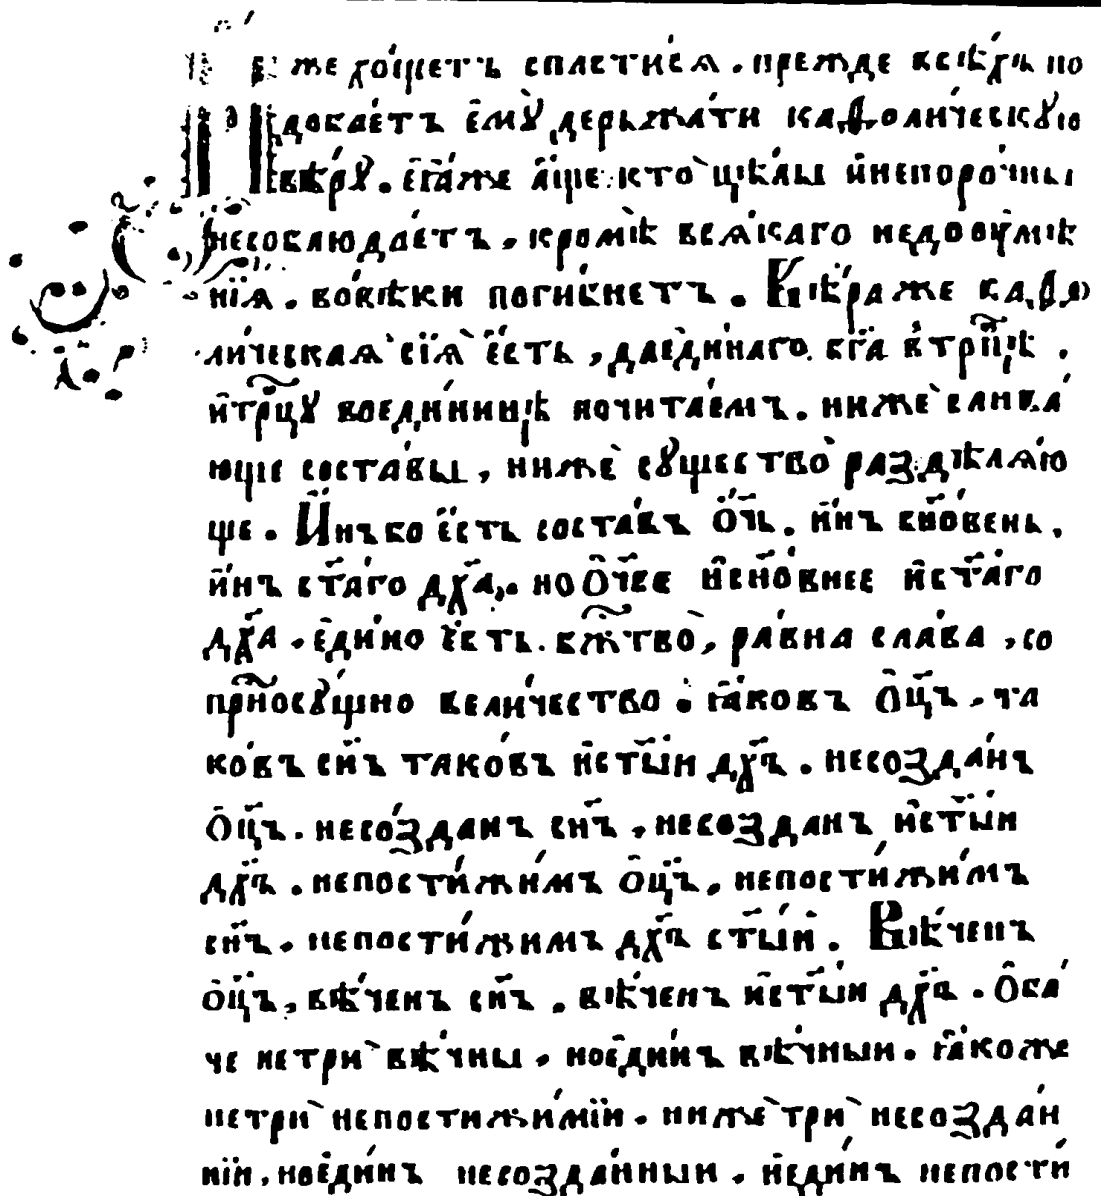 же хо́щетъ спасти́сѧ. прежде всѣ́хъ по
добае́тъ є҆мꙋ̀ держа́ти каѳоли́ческꙋю
вѣ́рꙋ. є҆ѧ́же а҆́ще кто̀ цѣ́лы и҆непоро́чны
несоблюдае́тъ, кромѣ̀ всѧ́каго недоꙋ҆мѣ
нїѧ. во́вѣки поги́бнетъ. Вѣ́раже каѳо
ли́ческаѧ сїѧ̀ є҆́сть, даеди́наго бг҃а в҆трⷪ҇цѣ.
и҆трⷪ҇цꙋ воеди́ницѣ почита́емъ. нижѐ слива́
юще соста́вы, нижѐ сꙋщество̀ раздѣлѧ́ю
ще. И҆́нъбо є҆́сть соста́въ ѻ҆ч҃ь. и҆́нъ сн҃о́венъ.
и҆́нъ ст҃а́го дх҃а,. но ѻ҆ч҃ее и҆сн҃о́внее и҆ст҃а́го
дх҃а. є҆ди́но є҆́сть. бж҃тво̀, ра́вна сла́ва, со
прⷭ҇носꙋ́щно вели́чество. ꙗ҆ко́въ ѻ҆ц҃ъ. та
ко́въ сн҃ъ тако́въ и҆ст҃ы́и дх҃ъ. несозда́нъ
ѻ҆ц҃ъ. несо́зданъ сн҃ъ. несозданъ и҆ст҃ы́и
дх҃ъ. непости́жи́мъ ѻ҆ц҃ъ. непости́жи́мъ
сн҃ъ. непости́жимъ дх҃ъ ст҃ы́и. Вѣ́ченъ
ѻ҆ц҃ъ, вѣ́ченъ сн҃ъ. вѣ́ченъ и҆ст҃ы́и дх҃ъ. Ѻ҆ба́
че нетрѝ вѣ́чны. ноє҆ди́нъ вѣ́чныи. ꙗ҆́коже
нетрѝ непостижи́мїи. нижѐ трѝ несозда́н
нїи. ноє҆ди́нъ несозда́нныи. и҆єди́нъ непости́